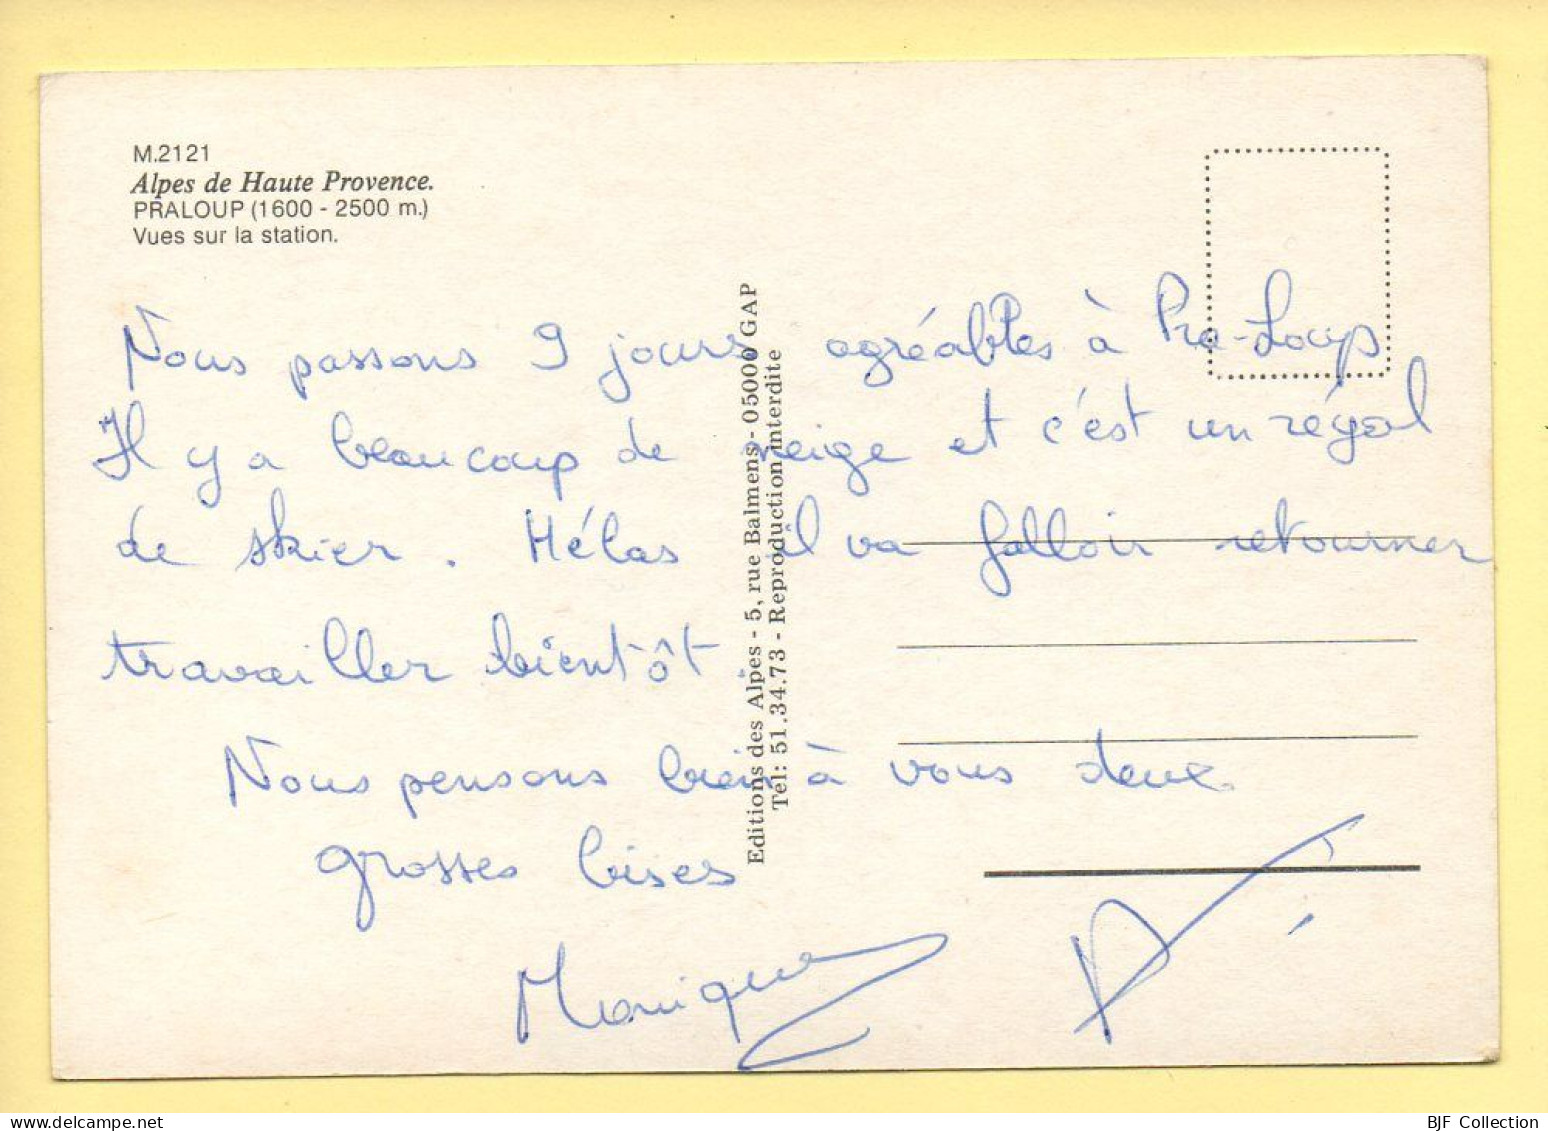 M.2121
Alpes de Haute Provence.
PRALOUP (1600 - 2500 m.)
Vues sur la station.
Nous passons 9 jours agréables à Pra-Loup
Il y a beaucoup de neige et c'est un régal
de skier. Hélas il va falloir retourner
travailler bientôt.
Nous pensons bien à vous deux
grosses bises
Monique
Editions des Alpes - 5, rue Balmens - 05000 GAP
Tel: 51.34.73 - Reproduction interdite
BJF Collection